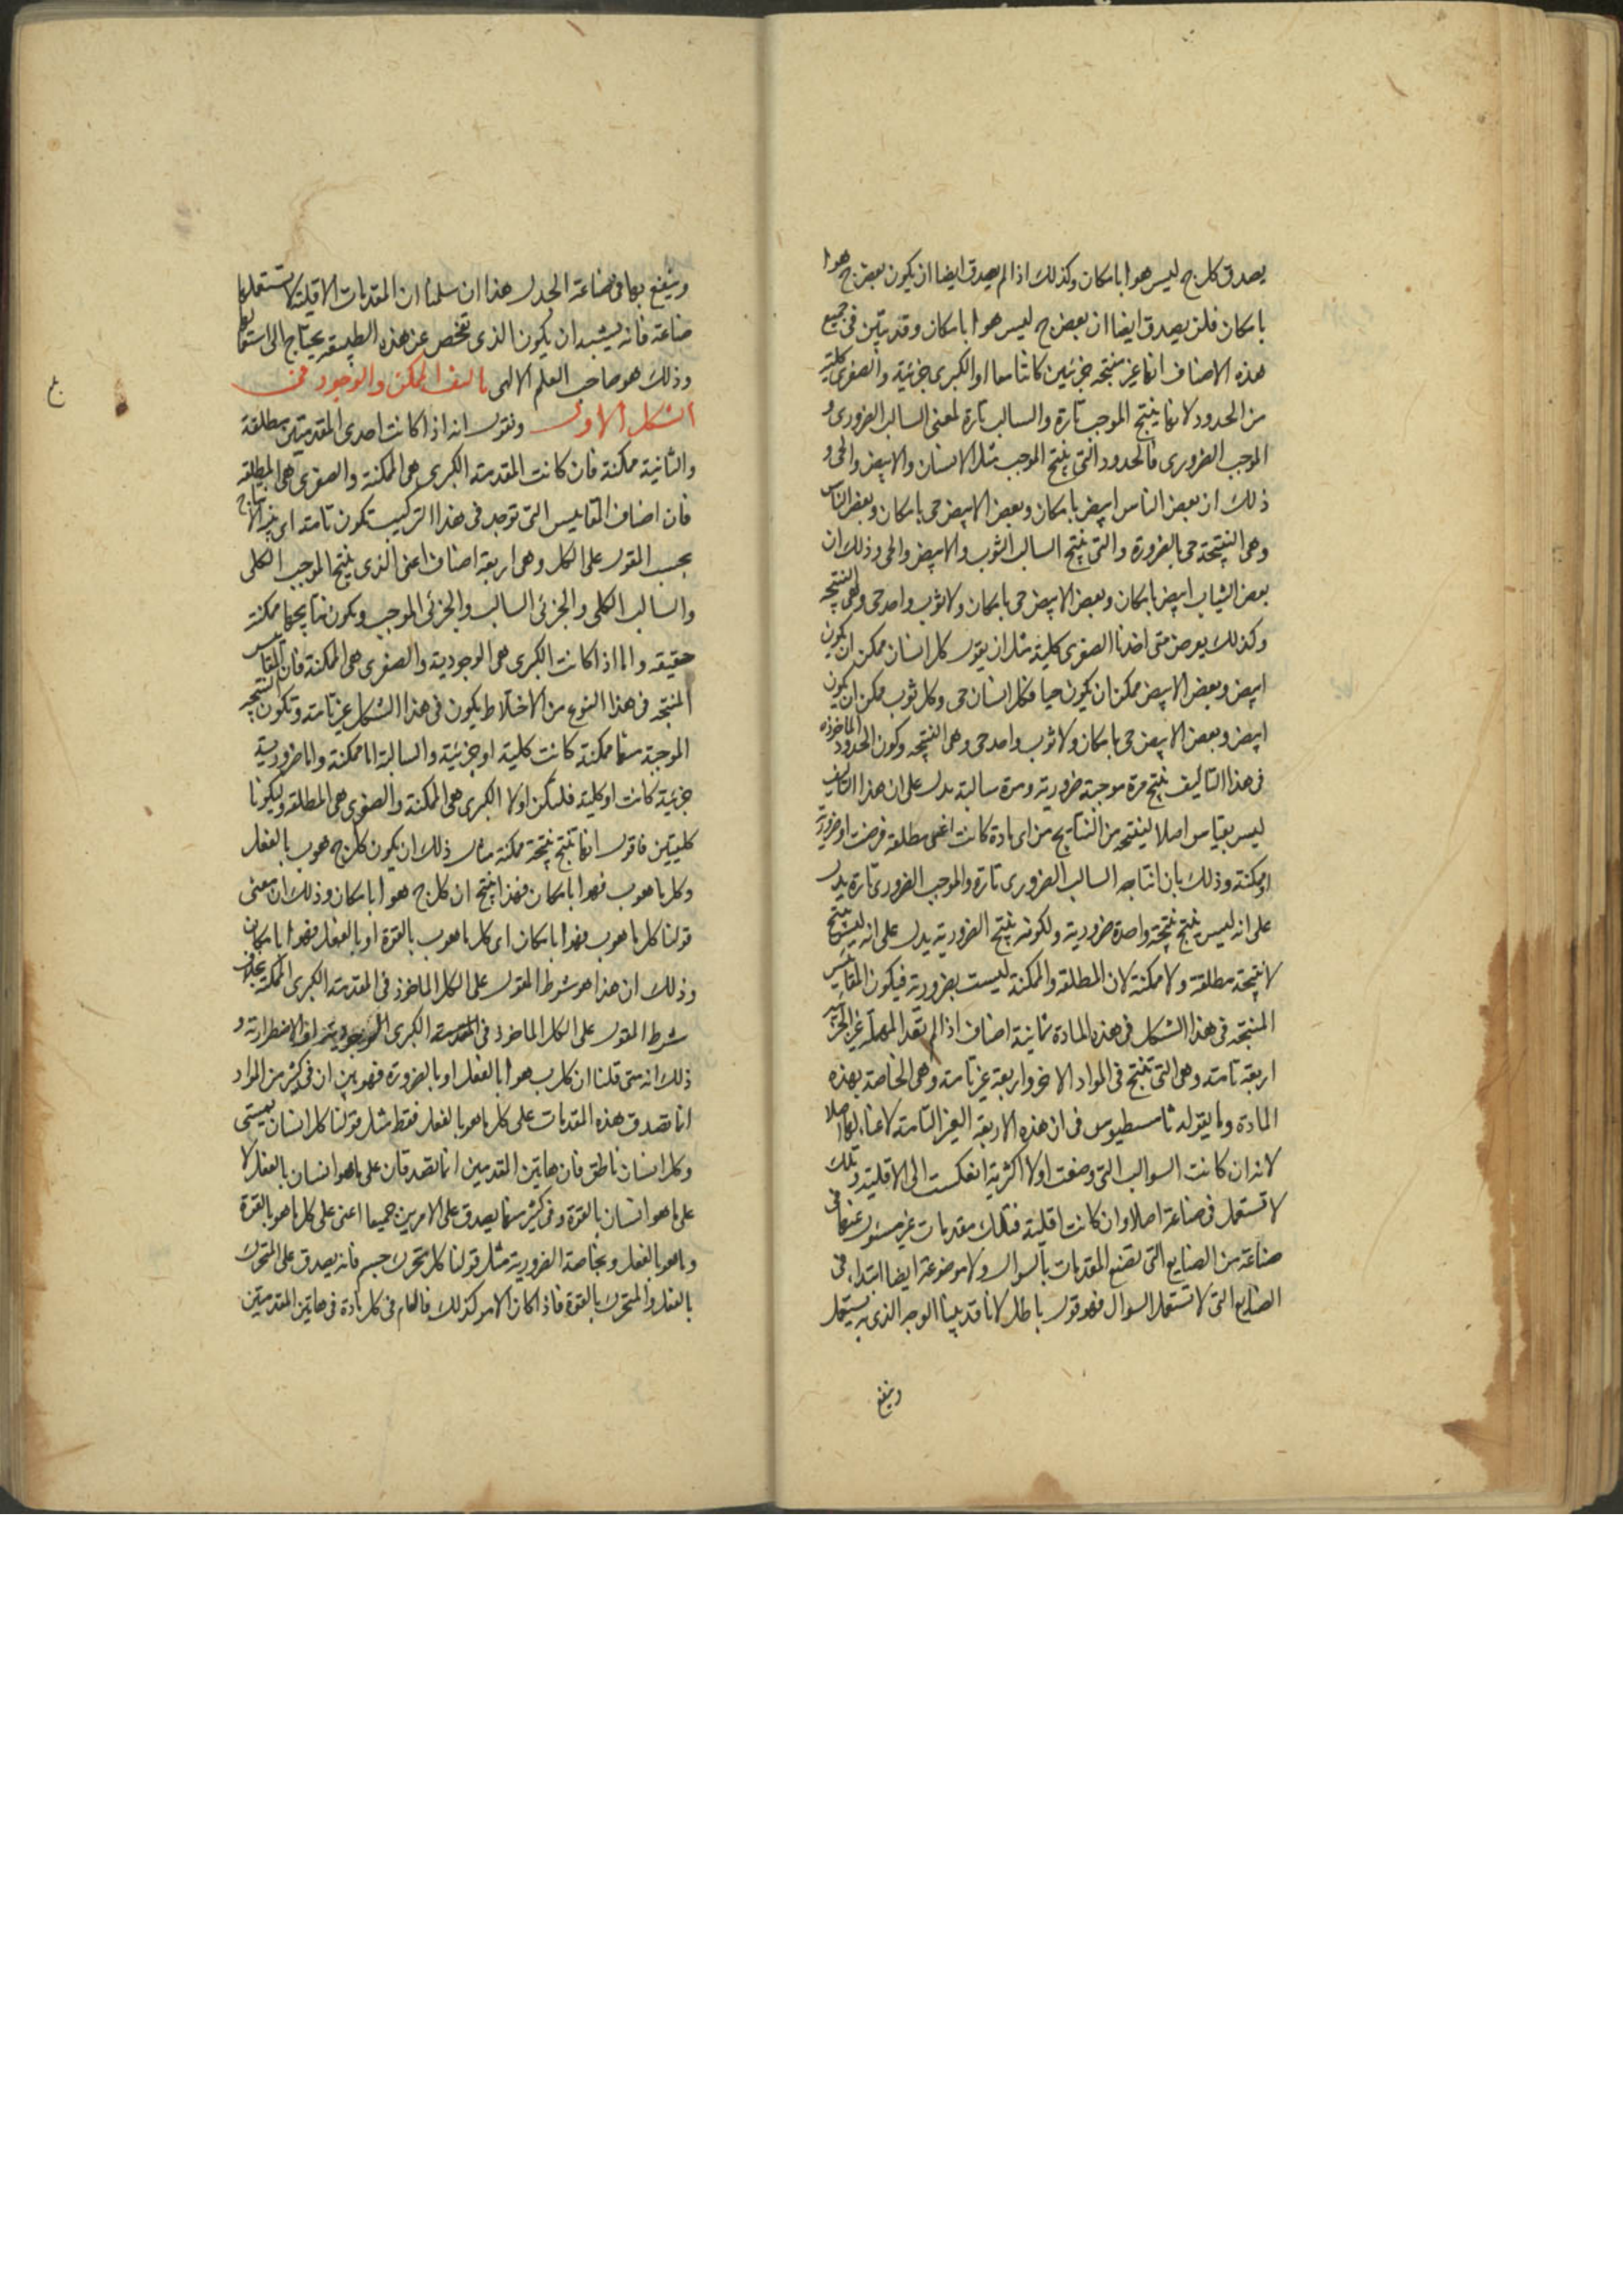 يصدق كل ج ليس هو ا بامكان وكذلك اذا لم يصدق ايضا ان يكون بعض ج هو ا
بامكان فلن يصدق ايضا ان بعض ج ليس هو ا بامكان وقد يتبين في جميع
هذه الاصناف انها غير منتجة جزئيين كانتا معا او الكبرى جزئية والصغرى كلية
من الحدود لانها ينتج الموجب تارة والسالب تارة لمعنى السالب الضرورى و
الموجب الضرورى فالحدود التى ينتج الموجب مثل الانسان والابيض والحى و
ذلك ان بعض الناس ابيض بامكان وبعض الابيض حى بامكان وبعض الناس
وهى النتيجة حى بالضرورة والتى ينتج السالب الثوب والابيض والحى وذلك ان
بعض الثياب ابيض بامكان وبعض الابيض حى بامكان ولا ثوب واحد حى وهى النتيجة
وكذلك يعرض متى اخذنا الصغرى كلية مثل ان يقول كل انسان ممكن ان يكون
ابيض وبعض الابيض ممكن ان يكون حيا فكل انسان حى وكل ثوب ممكن ان يكون
ابيض وبعض الابيض حى بامكان ولا ثوب واحد حى وهى النتيجة وكون الحدود الماخوذة
فى هذا التاليف ينتج مرة موجبة ضرورية ومرة سالبة يدل على ان هذا التاليف
ليس بقياس اصلا لنتيجة من النتايج من اى مادة كانت اعنى مطلقة فرضت او ضرورية
او ممكنة وذلك بان انتاجه السالب الضرورى تارة والموجب الضرورى تارة يدل
على انه ليس ينتج نتيجة واحدة ضرورية ولكونه ينتج الضرورية يدل على انه ليس ينتج
لا نتيجة مطلقة ولا ممكنة لان المطلقة والممكنة ليست بضرورية فيكون المقاييس
المنتجة فى هذا الشكل فى هذه المادة ثمانية اصناف اذا لم تعد المهملة غير الجزئية
اربعة تامة وهى التى تنتج فى المواد الاخر واربعة غير تامة وهى الخاصة بهذه
المادة وما يقوله ثامسطيوس فى ان هذه الاربعة الغير التامة لا غناء لها اصلا
لانه ان كانت السوالب التى وضعت اولا اكثرية انعكست الى الاقلية وتلك
لا تستعمل فى صناعة اصلا وان كانت اقلية فتلك مقدمات غير مسئول عنها فى
صناعة من الصنايع التى تصنع المقدمات بالسوال ولا موضوعة ايضا ابتداء فى
الصنايع التى لا تستعمل السوال فهو قول باطل لانا قد بينا الوجه الذى به يستعمل
وينتفع
وينتفع بها فى صناعة الجدل هذا ان سلمنا ان المقدمات الاقلية لا تستعملها
صناعة فانه يشبه ان يكون الذى تفحص عن هذه الطبيعة يحتاج الى استعمالها
وذلك هو صاحب العلم الالهى تاليف الممكن والوجود فى
الشكل الاول ونقول انه اذا كانت احدى المقدمتين مطلقة
والثانية ممكنة فان كانت المقدمة الكبرى هى الممكنة والصغرى هى المطلقة
فان اصناف المقاييس التى توجد فى هذا التركيب تكون تامة اى بينة الانتاج
بحسب المقول على الكل وهى اربعة اصناف اعنى الذى ينتج الموجب الكلى
والسالب الكلى والجزئى السالب والجزئى الموجب ويكون نتايجها ممكنة
حقيقة واما اذا كانت الكبرى هى الوجودية والصغرى هى الممكنة فان المقاييس
المنتجة فى هذا النوع من الاختلاط يكون فى هذا الشكل غير تامة وتكون النتيجة
الموجبة منها ممكنة كانت كلية او جزئية والسالبة اما ممكنة واما ضرورية
جزئية كانت او كلية فلتكن اولا الكبرى هى الممكنة والصغرى هى المطلقة وليكونا
كليتين فاقول انها تنتج نتيجة ممكنة مثال ذلك ان يكون كل ج هو ب بالفعل
وكل ما هو ب فهو ا بامكان فهذا ينتج ان كل ج هو ا بامكان وذلك ان معنى
قولنا كل ما هو ب فهو ا بامكان اى كل ما هو ب بالقوة او بالفعل فهو ا بامكان
وذلك ان هذا هو شرط المقول على الكل الماخوذ فى المقدمة الكبرى الممكنة بخلاف
شرط المقول على الكل الماخوذ فى المقدمة الكبرى الوجودية او الاضطرارية و
ذلك انه متى قلنا ان كل ب هو ا بالفعل او بالضرورة فهو بين ان فى كثير من المواد
انما تصدق هذه المقدمات على كل ما هو بالفعل فقط مثل قولنا كل انسان يمشى
وكل انسان ناطق فان هاتين المقدمتين انما تصدقان على ما هو انسان بالفعل لا
على ما هو انسان بالقوة وفى كثير منها يصدق على الامرين جميعا اعنى على كل ما هو بالقوة
وما هو بالفعل وبخاصة الضرورية مثل قولنا كل متحرك جسم فانه يصدق على المتحرك
بالفعل والمتحرك بالقوة فاذا كان الامر كذلك فالعام فى كل مادة فى هاتين المقدمتين